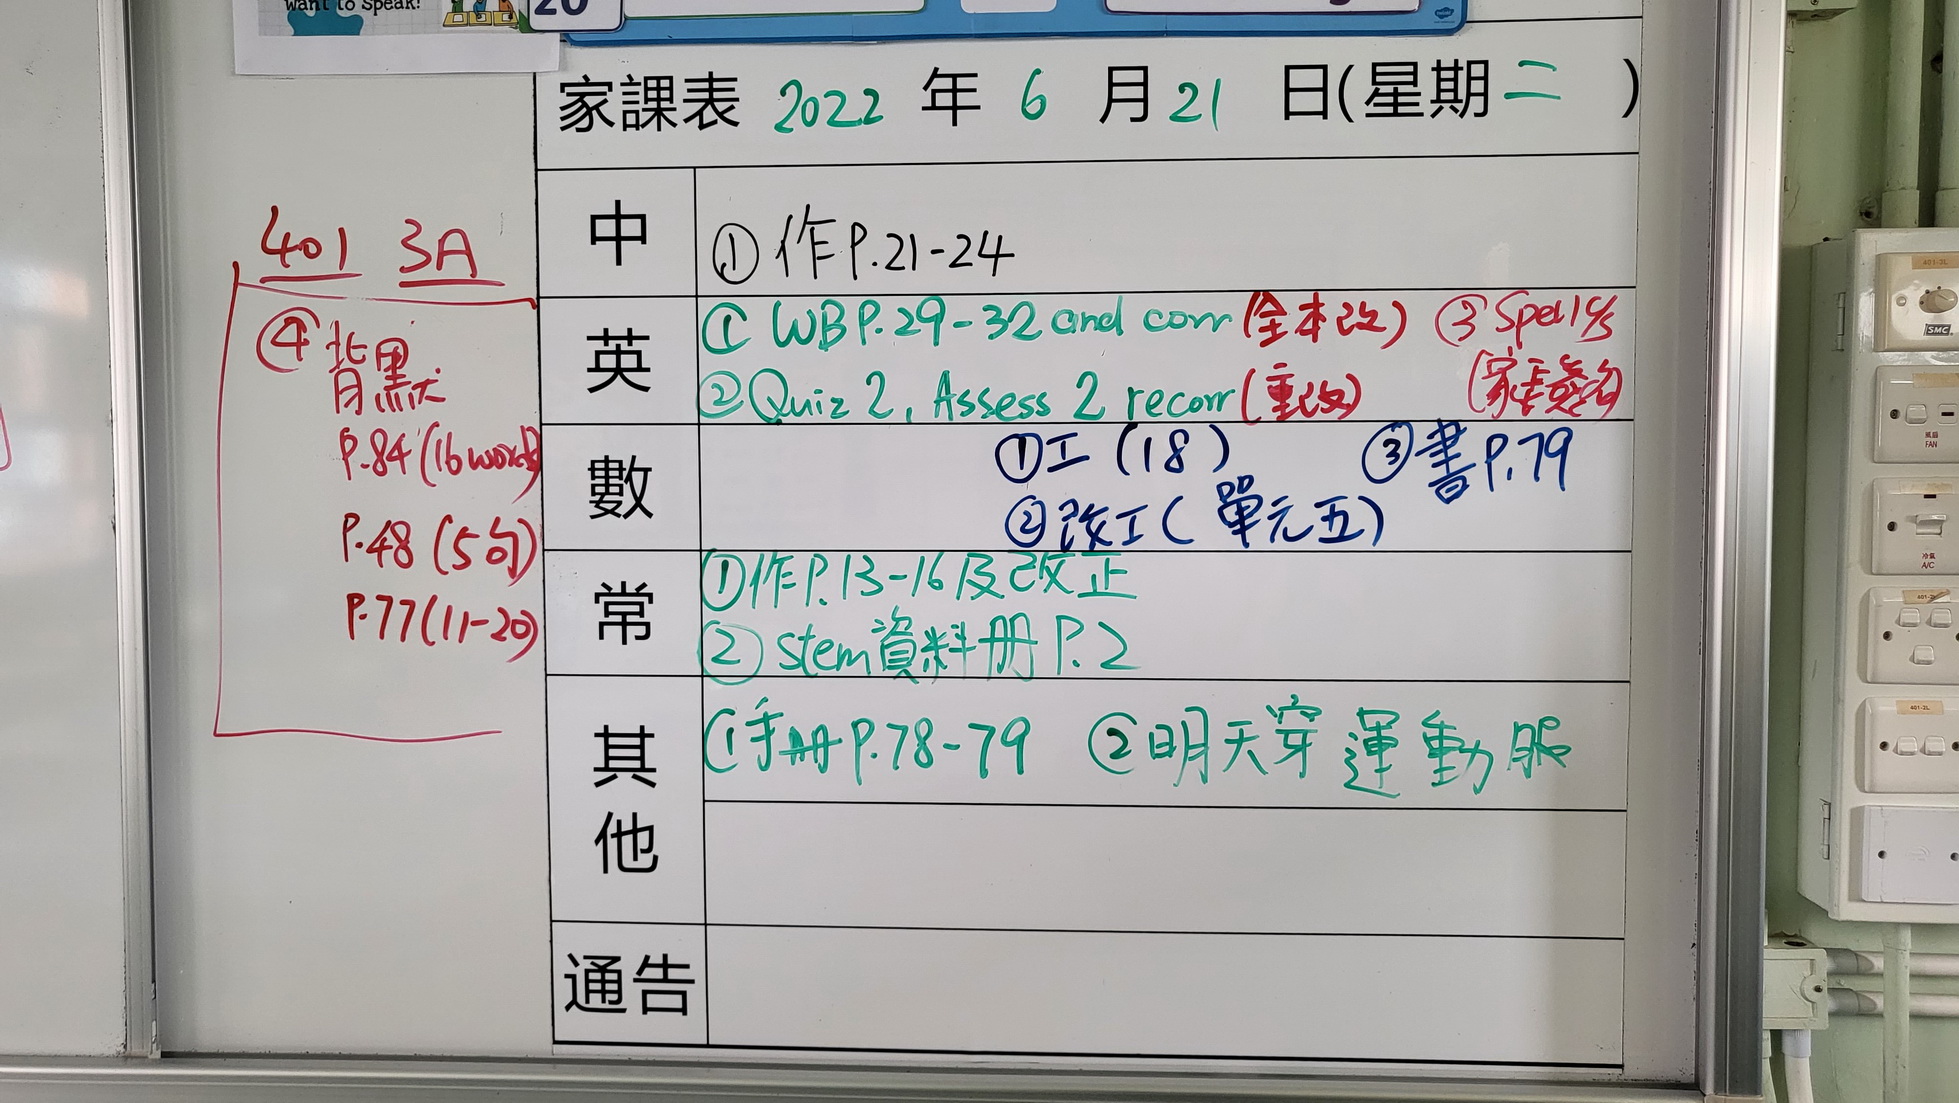 want to speak!
20
家課表 2022 年 6 月 21 日(星期二 )
中
① 作P.21-24
英
① WB P.29-32 and corr (全本改) ③ Spell 4/5
② Quiz 2, Assess 2 recorr (重改) (家長簽名)
數
① 工 (18) ③ 書P.79
② 改工 (單元五)
常
① 作P.13-16及改正
② stem資料册 P.2
其他
① 手册 P.78-79 ② 明天穿運動服
通告
401 3A
④ 背默
P.84 (16 words)
P.48 (5句)
P.77 (11-20)
401-3L
SMC
風扇
FAN
冷氣
A/C
401-2L